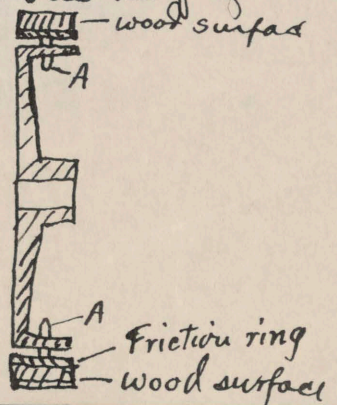 wood surfac
A
A
Friction ring
wood surface